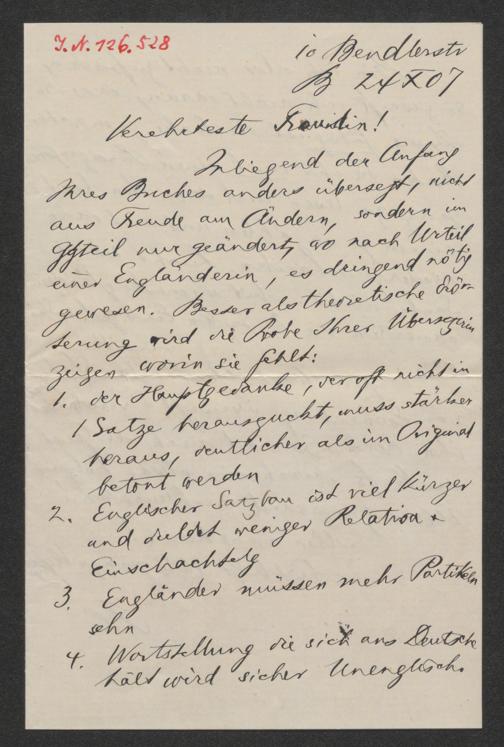 J.N. 126.528
10 Bendlerstr
B 24 X 07
Verehrteste Freundin!
Inliegend der Anfang
Ihres Buches anders übersetzt, nicht
aus Freude am Ändern, sondern im
Ggteil nur geändert, wo nach Urteil
einer Engländerin, es dringend nötig
gewesen. Besser als theoretische Erör-
terung wird die Probe Ihrer Übersetzerin
zeigen worin sie fehlt:
1. der Hauptgedanke, der oft nicht in
1 Satze herausguckt, muss stärker
heraus, deutlicher als im Original
betont werden
2. Englischer Satzbau ist viel kürzer
und duldet weniger Relativa +
Einschachtelg
3. Engländer müssen mehr Partikeln
sehn
4. Wortstellung die sich ans Deutsche
hält wird sicher Unenglisch.